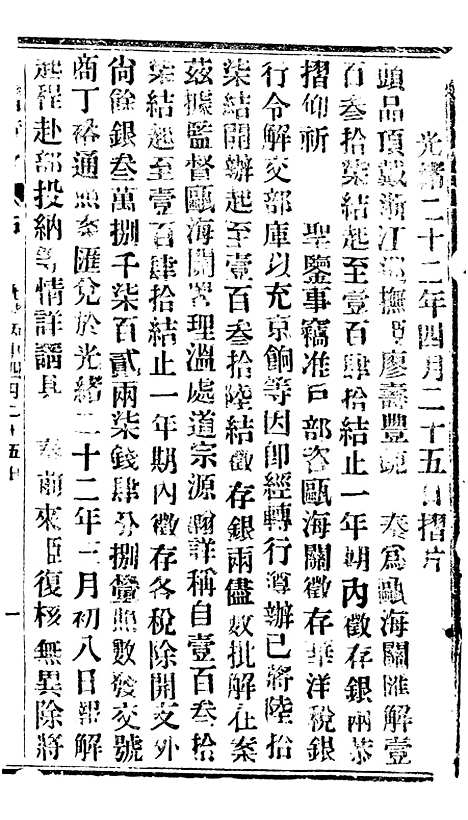 光緒二十二年四月二十五日摺片
頭品頂戴浙江巡撫臣廖壽豐跪　奏爲甌海關匯解壹
百叁拾柒結起至壹百肆拾結止一年期內徵存銀兩恭
摺仰祈　聖鑒事竊准戶部咨甌海關徵存華洋稅銀
行令解交部庫以充京餉等因卽經轉行遵辦已將陸拾
柒結開辦起至壹百叁拾陸結徵存銀兩儘數批解在案
茲據監督甌海關署理溫處道宗源瀚詳稱自壹百叁拾
柒結起至壹百肆拾結止一年期內徵存各稅除開支外
尙餘銀叁萬捌千柒百貳兩柒錢肆分捌釐照數發交號
商丁裕通照案匯兌於光緒二十二年三月初八日報解
起程赴部投納等情詳請具　奏前來臣復核無異除將
一